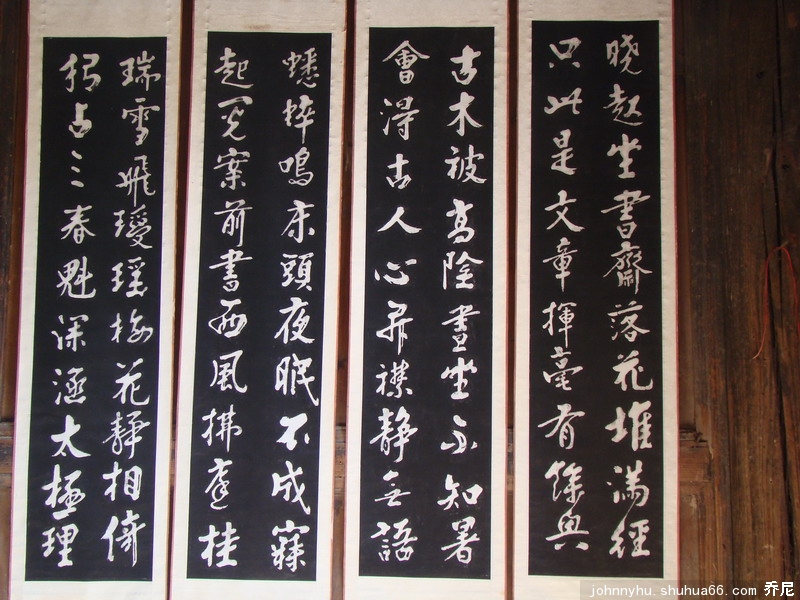 晓起坐書齋落花堆满径
只此是文章揮毫有餘興
古木被高陰晝坐不知暑
會得古人心開襟静無語
蟋蟀鳴床頭夜眠不成寐
起閱案前書西風拂庭桂
瑞雪飛瓊瑶梅花静相倚
独占三春魁深涵太極理
johnnyhu. shuhua66. com 乔尼